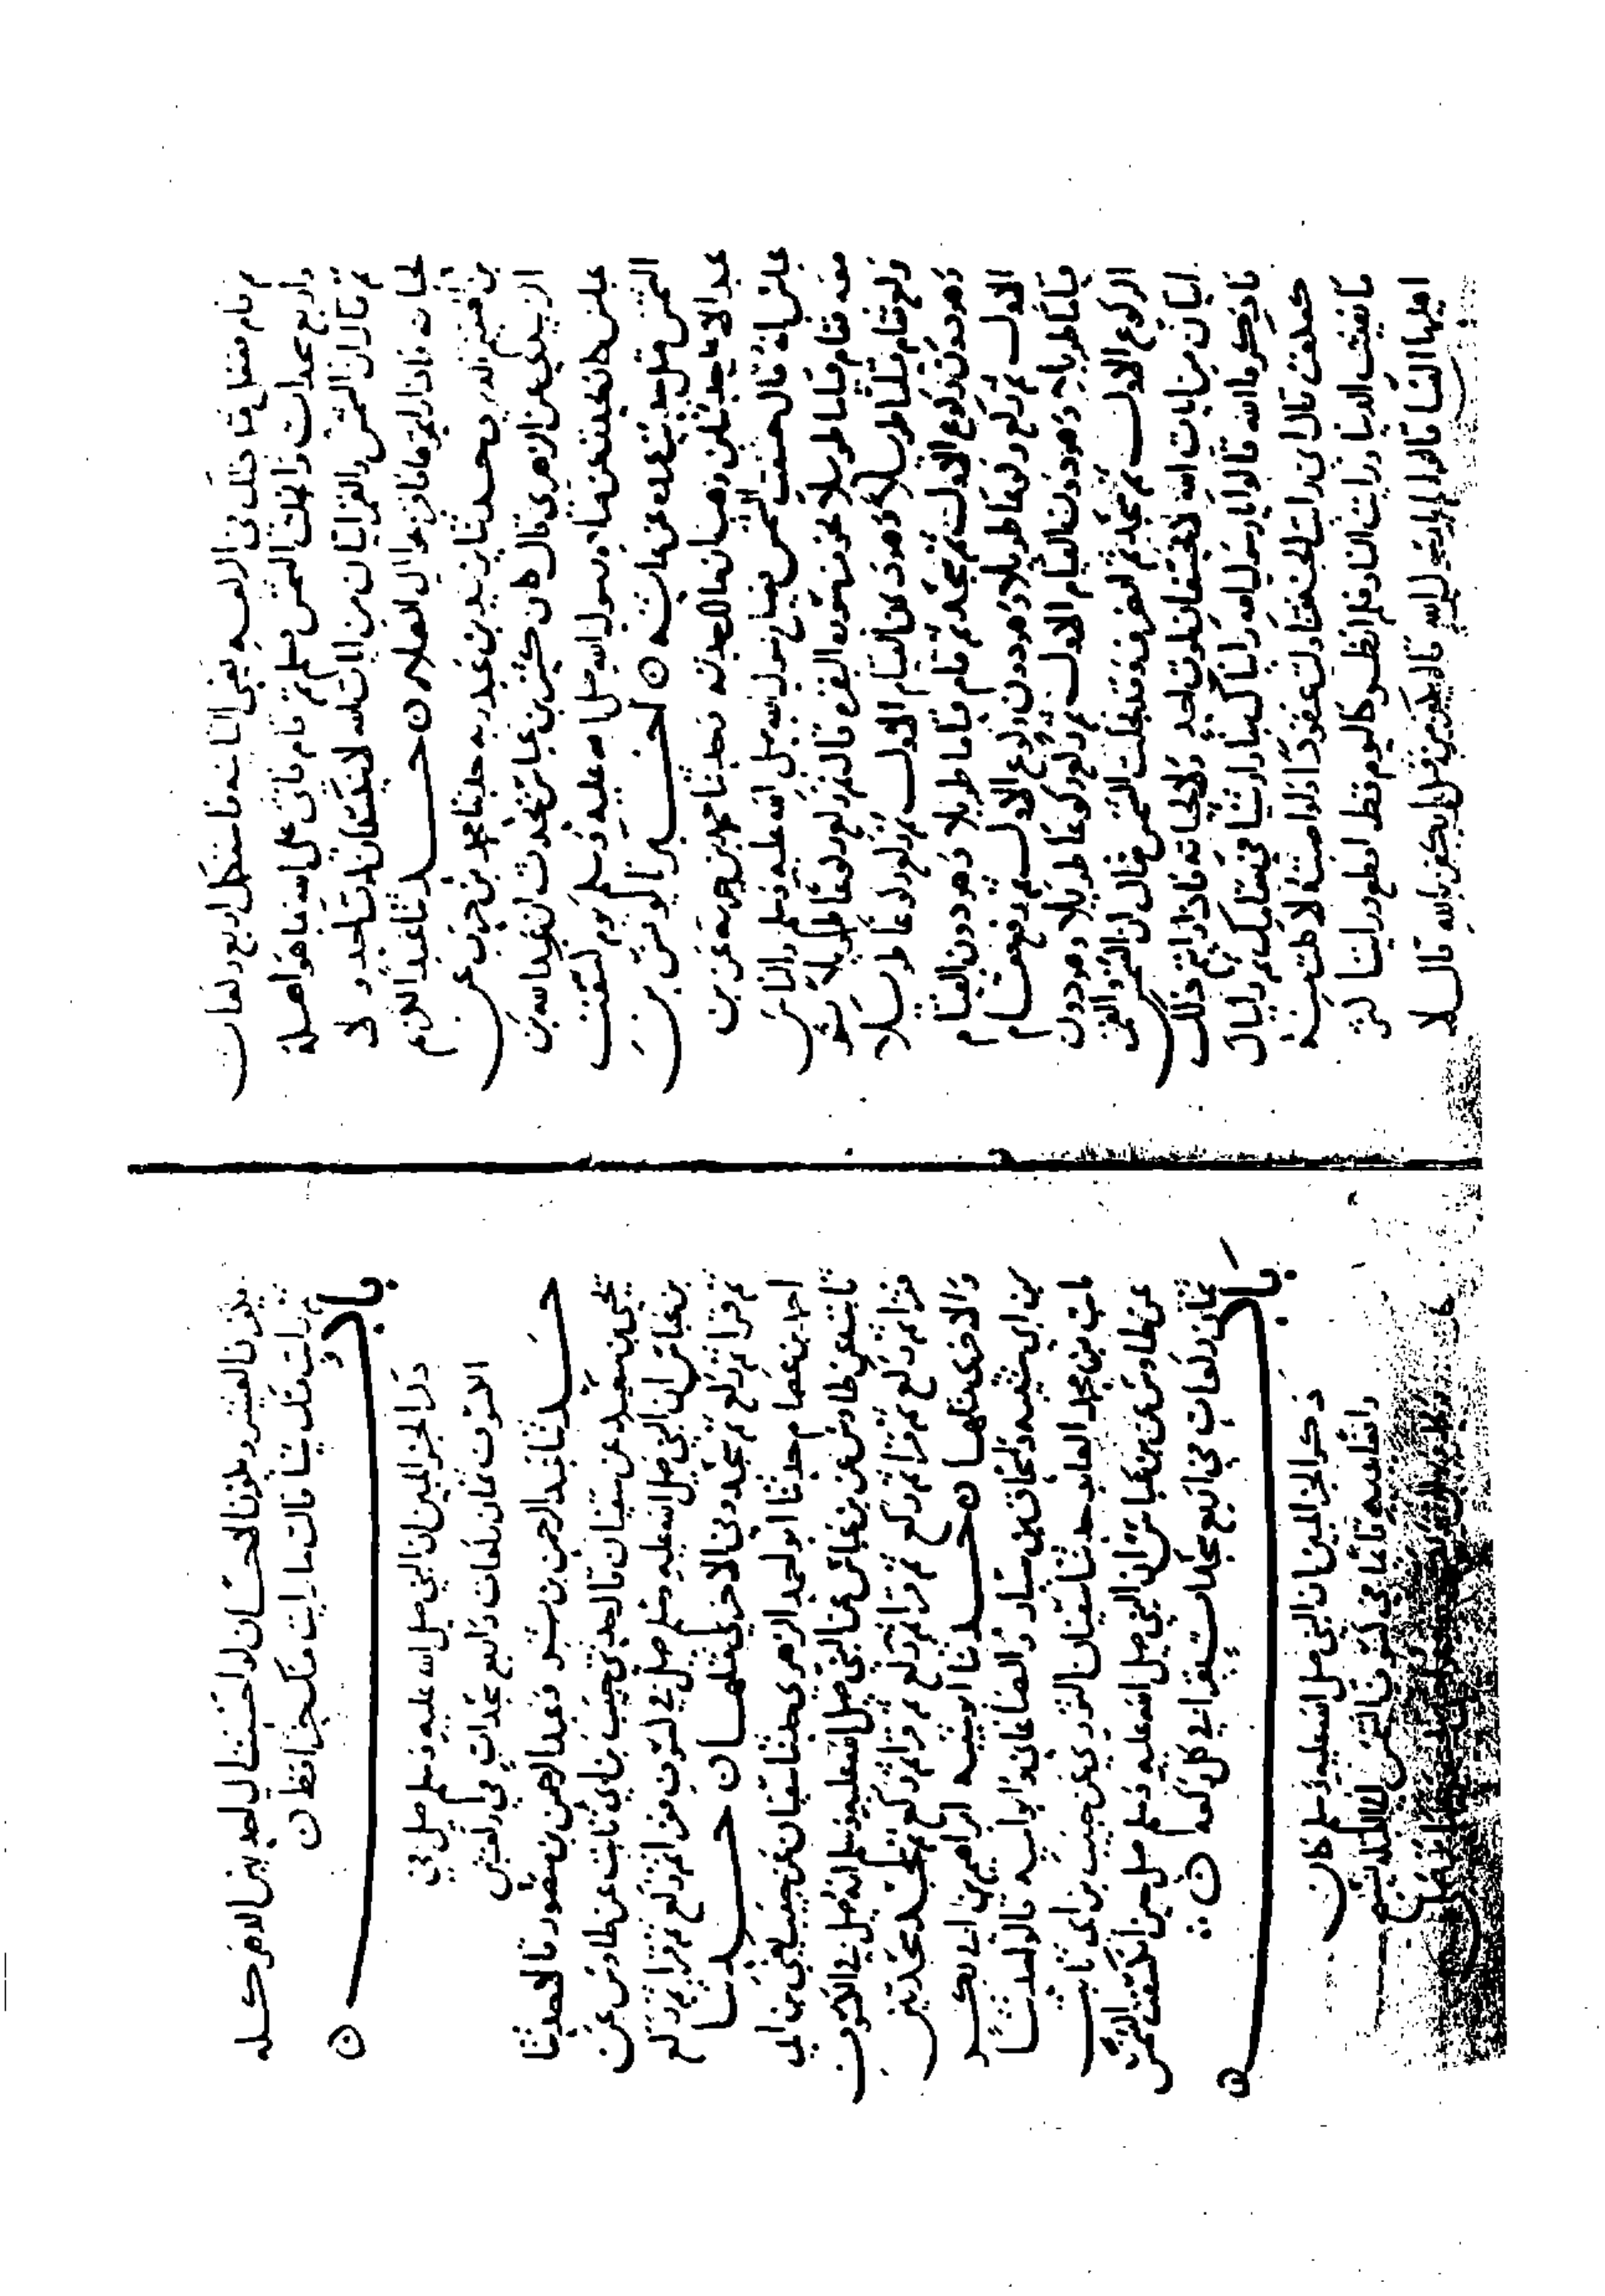 ثم قام ففعل مثل ذلك في الركعة يعني الثانية فاستكمل اربع ركعات
واربع سجدات وانجلت الشمس فسلم ثم قام فاثنى على الله بما هو اهله
ثم قال ان الشمس والقمر ايتان من ايات الله لا ينكسفان لموت احد ولا
لحياته فاذا رايتموهما فافزعوا الى الصلاه ن حدثنا عبد الكريم
بن الهيثم الدير حدثنا يزيد بن عبد ربه حدثنا محمد بن حرب عن
الزبيدي عن الزهري قال كان كثير بن عباس يحدث ان عبد الله بن
عباس كان يحدث عن صلاة رسول الله صلى الله عليه وسلم يوم كسفت
الشمس مثل حديث عروة عن عايشه ن اخبرنا يونس بن
عبد الاعلى حدثنا بن وهب ان مالكا حدثه عن زيد بن
عباس انه قال خسفت الشمس فصلى رسول الله صلى الله عليه وسلم والناس
معه فقام قياما طويلا نحو من سورة البقره قال ثم ركع ركوعا طويلا ثم
رفع فقام قياما طويلا وهو دون القيام الاول ثم ركع ركوعا طويلا
وهو دون الركوع الاول ثم سجد ثم قام قياما طويلا وهو دون القيام
الاول ثم ركع ركوعا طويلا وهو دون الركوع الاول ثم رفع فقام
قياما طويلا وهو دون القيام الاول ثم ركع ركوعا طويلا وهو دون
الركوع الاول ثم سجد ثم انصرف وقد تجلت الشمس فقال ان الشمس والقمر
ايتان من ايات الله لا يخسفان لموت احد ولا لحياته فاذا رايتم ذلك
فاذكروا الله قالوا يا رسول الله رايناك تناولت شيا في مقامك ثم رايناك
تكعكعت قال اني رايت الجنة فتناولت عنقودا ولو اصبته لاكلتم منه
ما بقيت الدنيا ورايت النار فلم انظر كاليوم قط افظع ورايت اكثر
اهلها النسا قالوا لم يا رسول الله قال بكفرهن قيل ايكفرن بالله قال لا
يكفرن العشير ويكفرن الاحسان لو احسنت الى احدهن الدهر كله
ثم رات منك شيا قالت ما رايت منك خيرا قط ن
باب
ذكر الخبر المبين ان النبي صلى الله عليه وسلم صلى في
الكسوف ثمان ركعات واربع سجدات في ركعتين
حدثنا عبد الرحمن بن بشر وعبد الرحمن بن منصور قالا حدثنا
يحيى بن سعيد عن سفيان قال حدثني حبيب بن ابي ثابت عن طاوس عن
بن عباس ان النبي صلى الله عليه وسلم صلى في كسوف فقرا ثم ركع ثم قرا ثم ركع
ثم قرا ثم ركع ثم سجد وفي الاخرى مثلها ن حدثنا
احمد بن عصام حدثنا ابو احمد الزهري حدثنا سفيان عن حبيب يعني بن ابي
ثابت عن طاوس عن بن عباس عن النبي صلى الله عليه وسلم انه صلى في الكسوف
فقرا ثم ركع ثم قرا ثم ركع ثم قرا ثم ركع ثم قرا ثم ركع ثم سجد سجدتين
والاخرى مثلها ن حدثنا ابو شيبه ابراهيم بن ابي بكر
بن ابي شيبه واسحاق بن سيار والصاغاني وابو اميه قالوا حدثنا
ثابت بن محمد العابد حدثنا سفيان الثوري عن حبيب بن ابي ثابت
عن طاوس عن بن عباس ان النبي صلى الله عليه وسلم صلى حين انكسفت الشمس
ثمان ركعات في اربع سجدات يقرا في كل ركعة ن
باب
ذكر الخبر المبين ان النبي صلى الله عليه وسلم كان
رافعا يديه قائما في كسوف الشمس